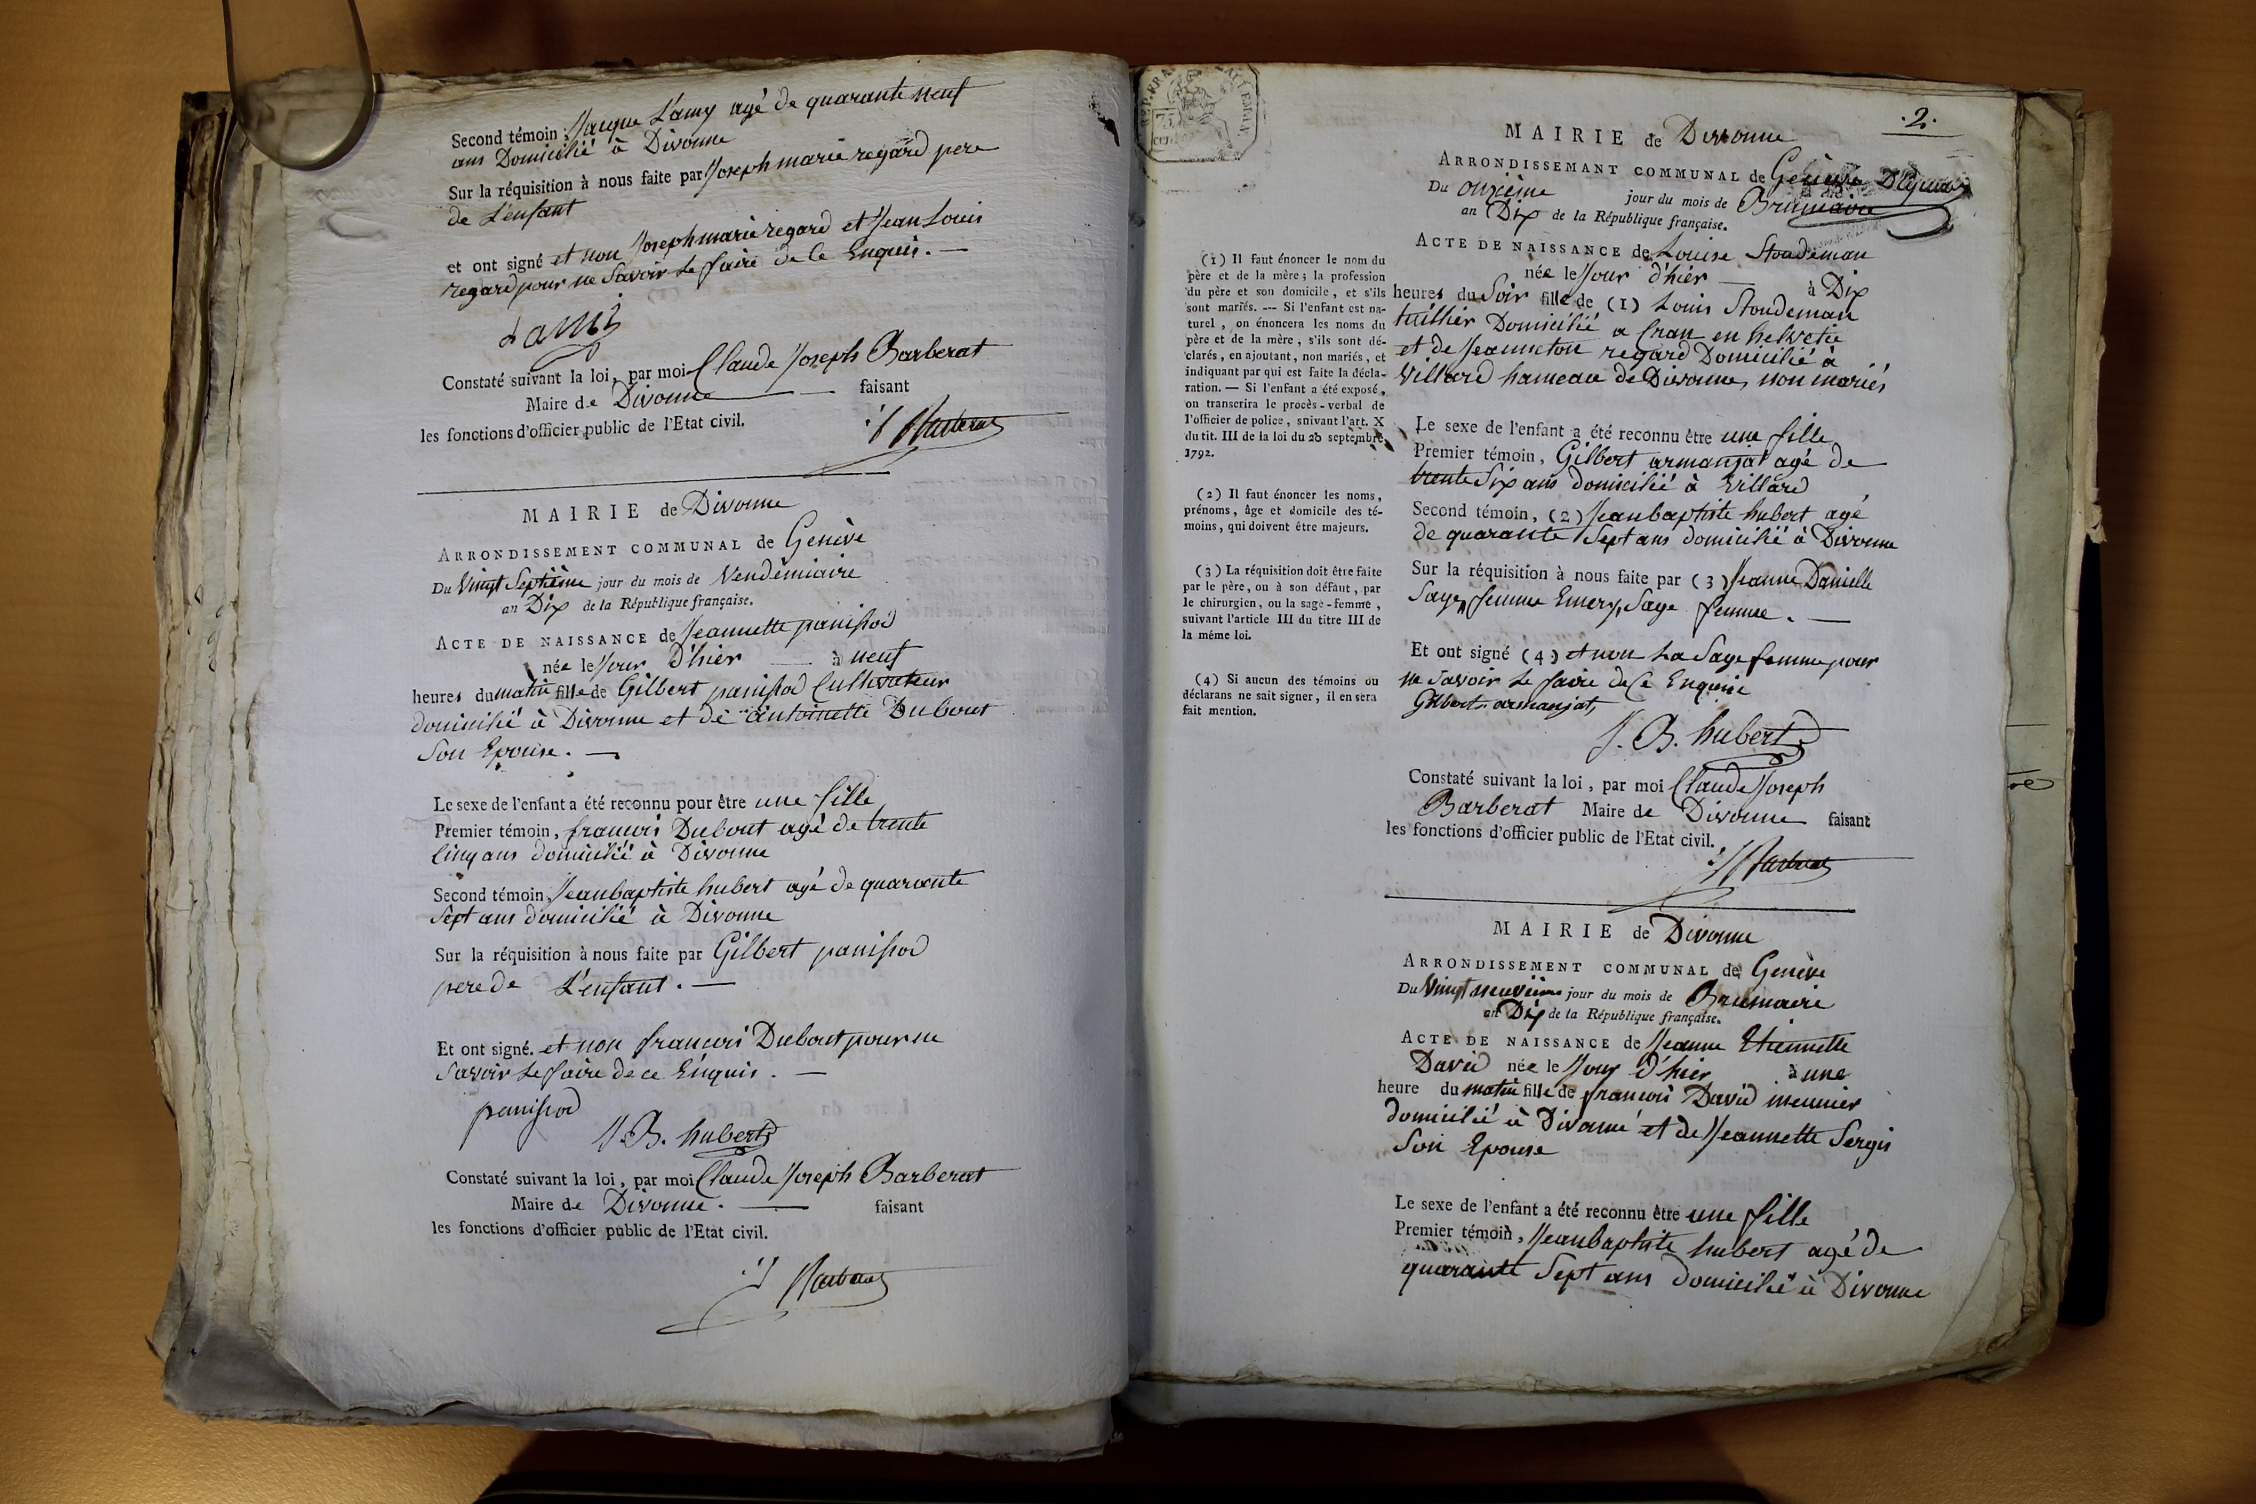 Second témoin, Jacque Lamy agé de quarante neuf
ans Domicilié à Divonne
Sur la réquisition à nous faite par Joseph marie regard pere
de L'enfant
et ont signé et non Joseph marie regard et Jean Louis
regard pour ne Savoir Le faire de Ce Enquis. —
Lami
Constaté suivant la loi, par moi Claude Joseph Barberat
Maire de Divonne — faisant
les fonctions d'officier public de l'Etat civil.
Barberat
MAIRIE de Divonne
ARRONDISSEMENT COMMUNAL de Genève
Du Vingt Septième jour du mois de Vendémiaire
an Dix de la République française.
ACTE DE NAISSANCE de Jeannette panissod
née le Jour D'hier — à neuf
heures du matin fille de Gilbert panissod Cultivateur
domicilié à Divonne et de antoinette Dubout
Son Epouse. —
Le sexe de l'enfant a été reconnu pour être une fille
Premier témoin, francois Dubout agé de trente
Cinq ans domicilié à Divonne
Second témoin, Jean baptiste hubert agé de quarante
Sept ans domicilié à Divonne
Sur la réquisition à nous faite par Gilbert panissod
pere de L'enfant. —
Et ont signé. et non francois Dubout pour ne
Savoir Le faire de ce Enquis. —
panissod
J. B. hubert
Constaté suivant la loi, par moi Claude Joseph Barberat
Maire de Divonne. — faisant
les fonctions d'officier public de l'Etat civil.
Barberat
.2.
MAIRIE de Divonne
ARRONDISSEMANT COMMUNAL de Genève
Du onzième jour du mois de Brumaire
an Dix de la République française.
ACTE DE NAISSANCE de Louise Stoudeman
née le Jour d'hier — à Dix
heures du Soir fille de (1) Louis Stoudeman
tuillier Domicilié a Cran en helvetie
et de Jeanneton regard Domicilié à
Villard hameau de Divonne, non mariés
(1) Il faut énoncer le nom du
père et de la mère; la profession
du père et son domicile, et s'ils
sont mariés. — Si l'enfant est na-
turel, on énoncera les noms du
père et de la mère, s'ils sont dé-
clarés, en ajoutant, non mariés, et
indiquant par qui est faite la décla-
ration. — Si l'enfant a été exposé,
on transcrira le procès-verbal de
l'officier de police, suivant l'art. X
du tit. III de la loi du 20 septembre
1792.
(2) Il faut énoncer les noms,
prénoms, âge et domicile des té-
moins, qui doivent être majeurs.
(3) La réquisition doit être faite
par le père, ou à son défaut, par
le chirurgien, ou la sage-femme,
suivant l'article III du titre III de
la même loi.
(4) Si aucun des témoins ou
déclarans ne sait signer, il en sera
fait mention.
Le sexe de l'enfant a été reconnu être une fille
Premier témoin, Gilbert armanjat agé de
trente Six ans domicilié à Villard
Second témoin, (2) Jean baptiste hubert agé
de quarante Sept ans domicilié à Divonne
Sur la réquisition à nous faite par (3) Jeanne Danielle
Sage, femme Emery, Sage femme. —
Et ont signé (4) et non La Sage femme pour
ne Savoir Le faire de Ce Enquise
Gilbert armanjat,
J. B. hubert
Constaté suivant la loi, par moi Claude Joseph
Barberat Maire de Divonne faisant
les fonctions d'officier public de l'Etat civil.
Barberat
MAIRIE de Divonne
ARRONDISSEMENT COMMUNAL de Genève
Du Vingt neuvième jour du mois de Brumaire
an Dix de la République française.
ACTE DE NAISSANCE de Jeanne Etiennette
David née le Jour d'hier à une
heure du matin fille de francois David meunier
domicilié à Divonne et de Jeannette Sergis
Son Epouse
Le sexe de l'enfant a été reconnu être une fille
Premier témoin, Jean baptiste hubert agé de
quarante Sept ans domicilié à Divonne